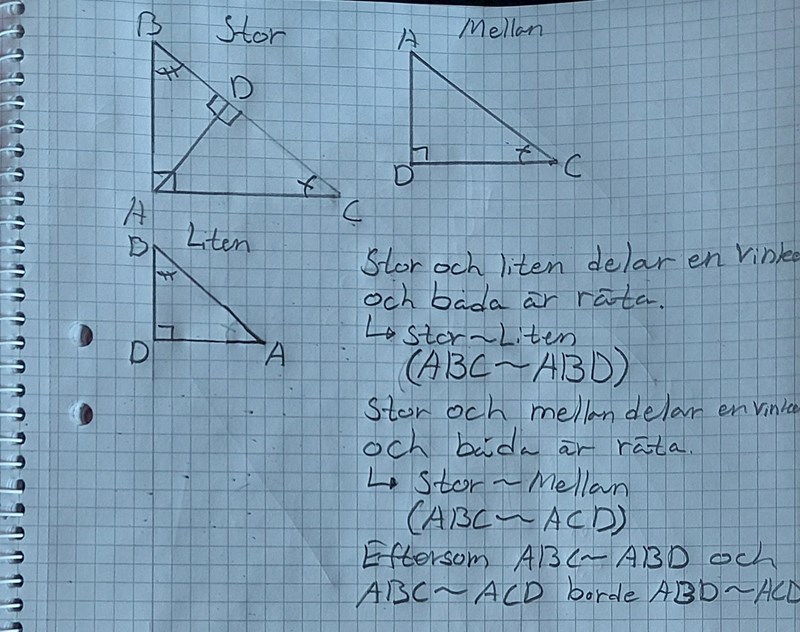 B Stor
D
A
C
A Mellan
D
C
B Liten
D
A
Stor och liten delar en vinkel
och båda är räta.
↳ Stor ~ Liten
(ABC ~ ABD)
Stor och mellan delar en vinkel
och båda är räta.
↳ Stor ~ Mellan
(ABC ~ ACD)
Eftersom ABC ~ ABD och
ABC ~ ACD borde ABD ~ ACD